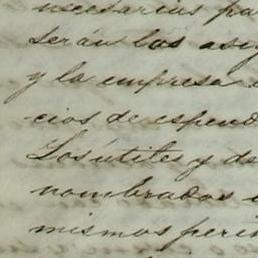 necesarios pa
serán las asig
y la empresa
cios de espend
Los útiles y de
nombrados
mismos peri